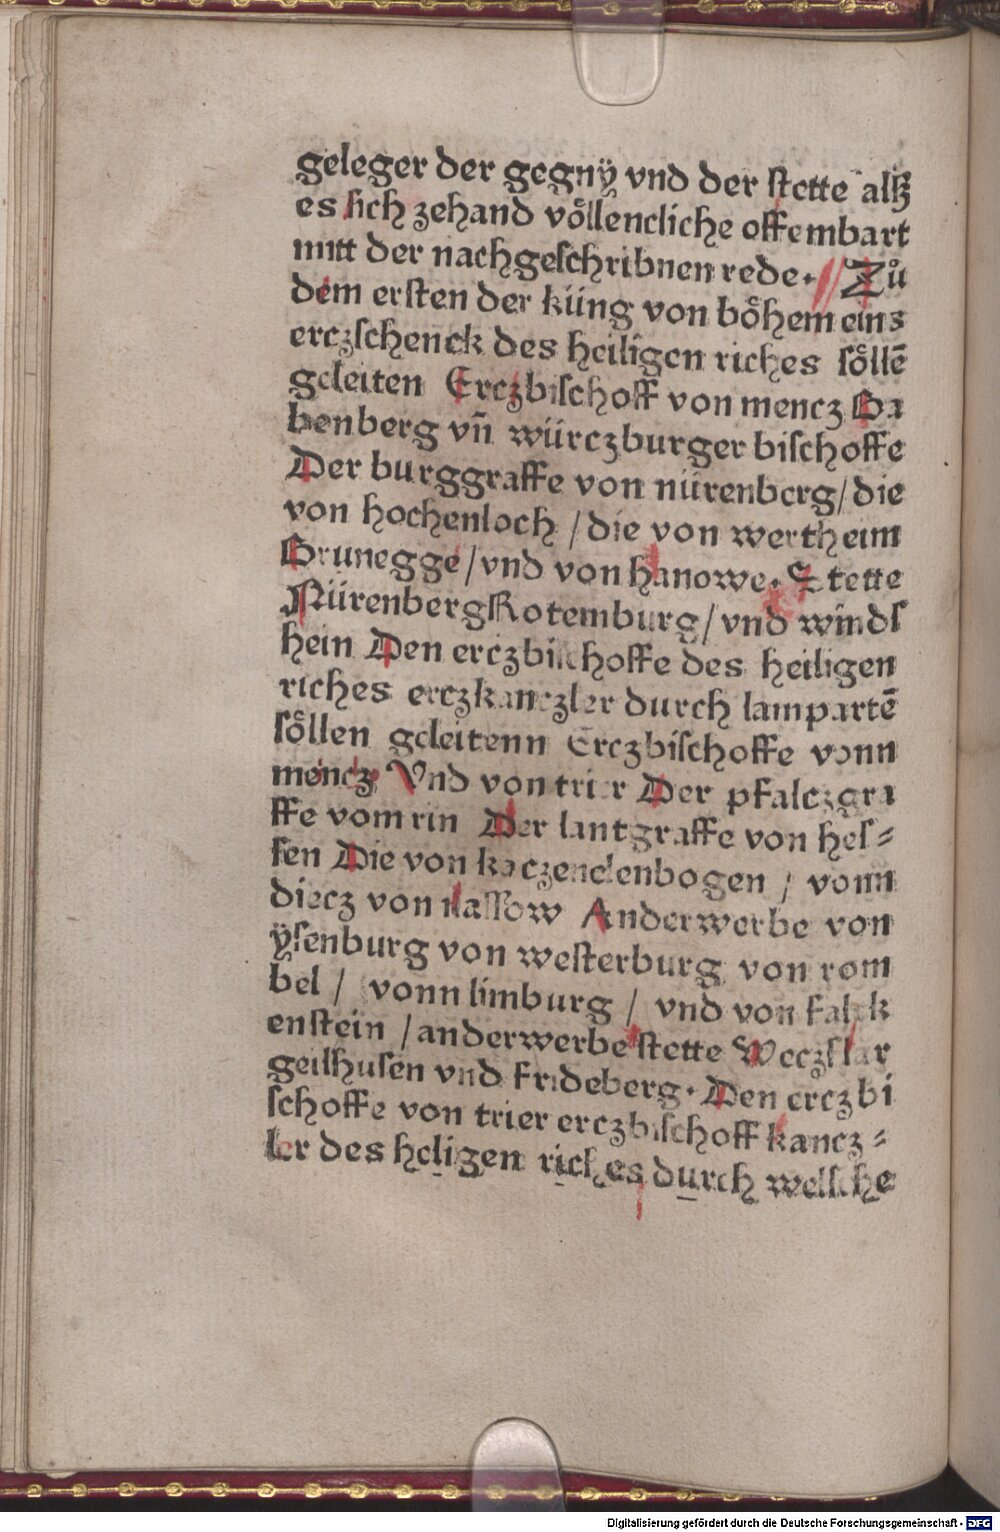 geleger der gegnÿ vnd der stette alsz
es sich zehand voͤllencliche offembart
mitt der nachgeschribnen rede. // Zů
dem ersten der küng von boͤhem eins
erczschenck des heiligen riches soͤllē
geleiten Erczbischoff von mencz Ba
benberg vn̄ würczburger bischoffe
Der burggraffe von nürenberg / die
von hochenloch / die von wertheim
Brunegge / vnd von hanowe. Stette
Nürenberg Rotemburg / vnd winds
hein Den erczbischoffe des heiligen
riches erczkanczler durch lampartē
soͤllen geleitenn Erczbischoffe vonn
mencz Vnd von trier Der pfalczgra
ffe vom rin Der lantgraffe von hes=
sen Die von kaczenelenbogen / vonn
diecz von nassow Anderwerbe von
ÿsenburg von westerburg von rom
bel / vonn limburg / vnd von falck
enstein / anderwerbe stette Weczflar
geilhusen vnd frideberg. Den erczbi
schoffe von trier erczbischoff kancz=
ler des heligen riches durch welsche
Digitalisierung gefördert durch die Deutsche Forschungsgemeinschaft - DFG